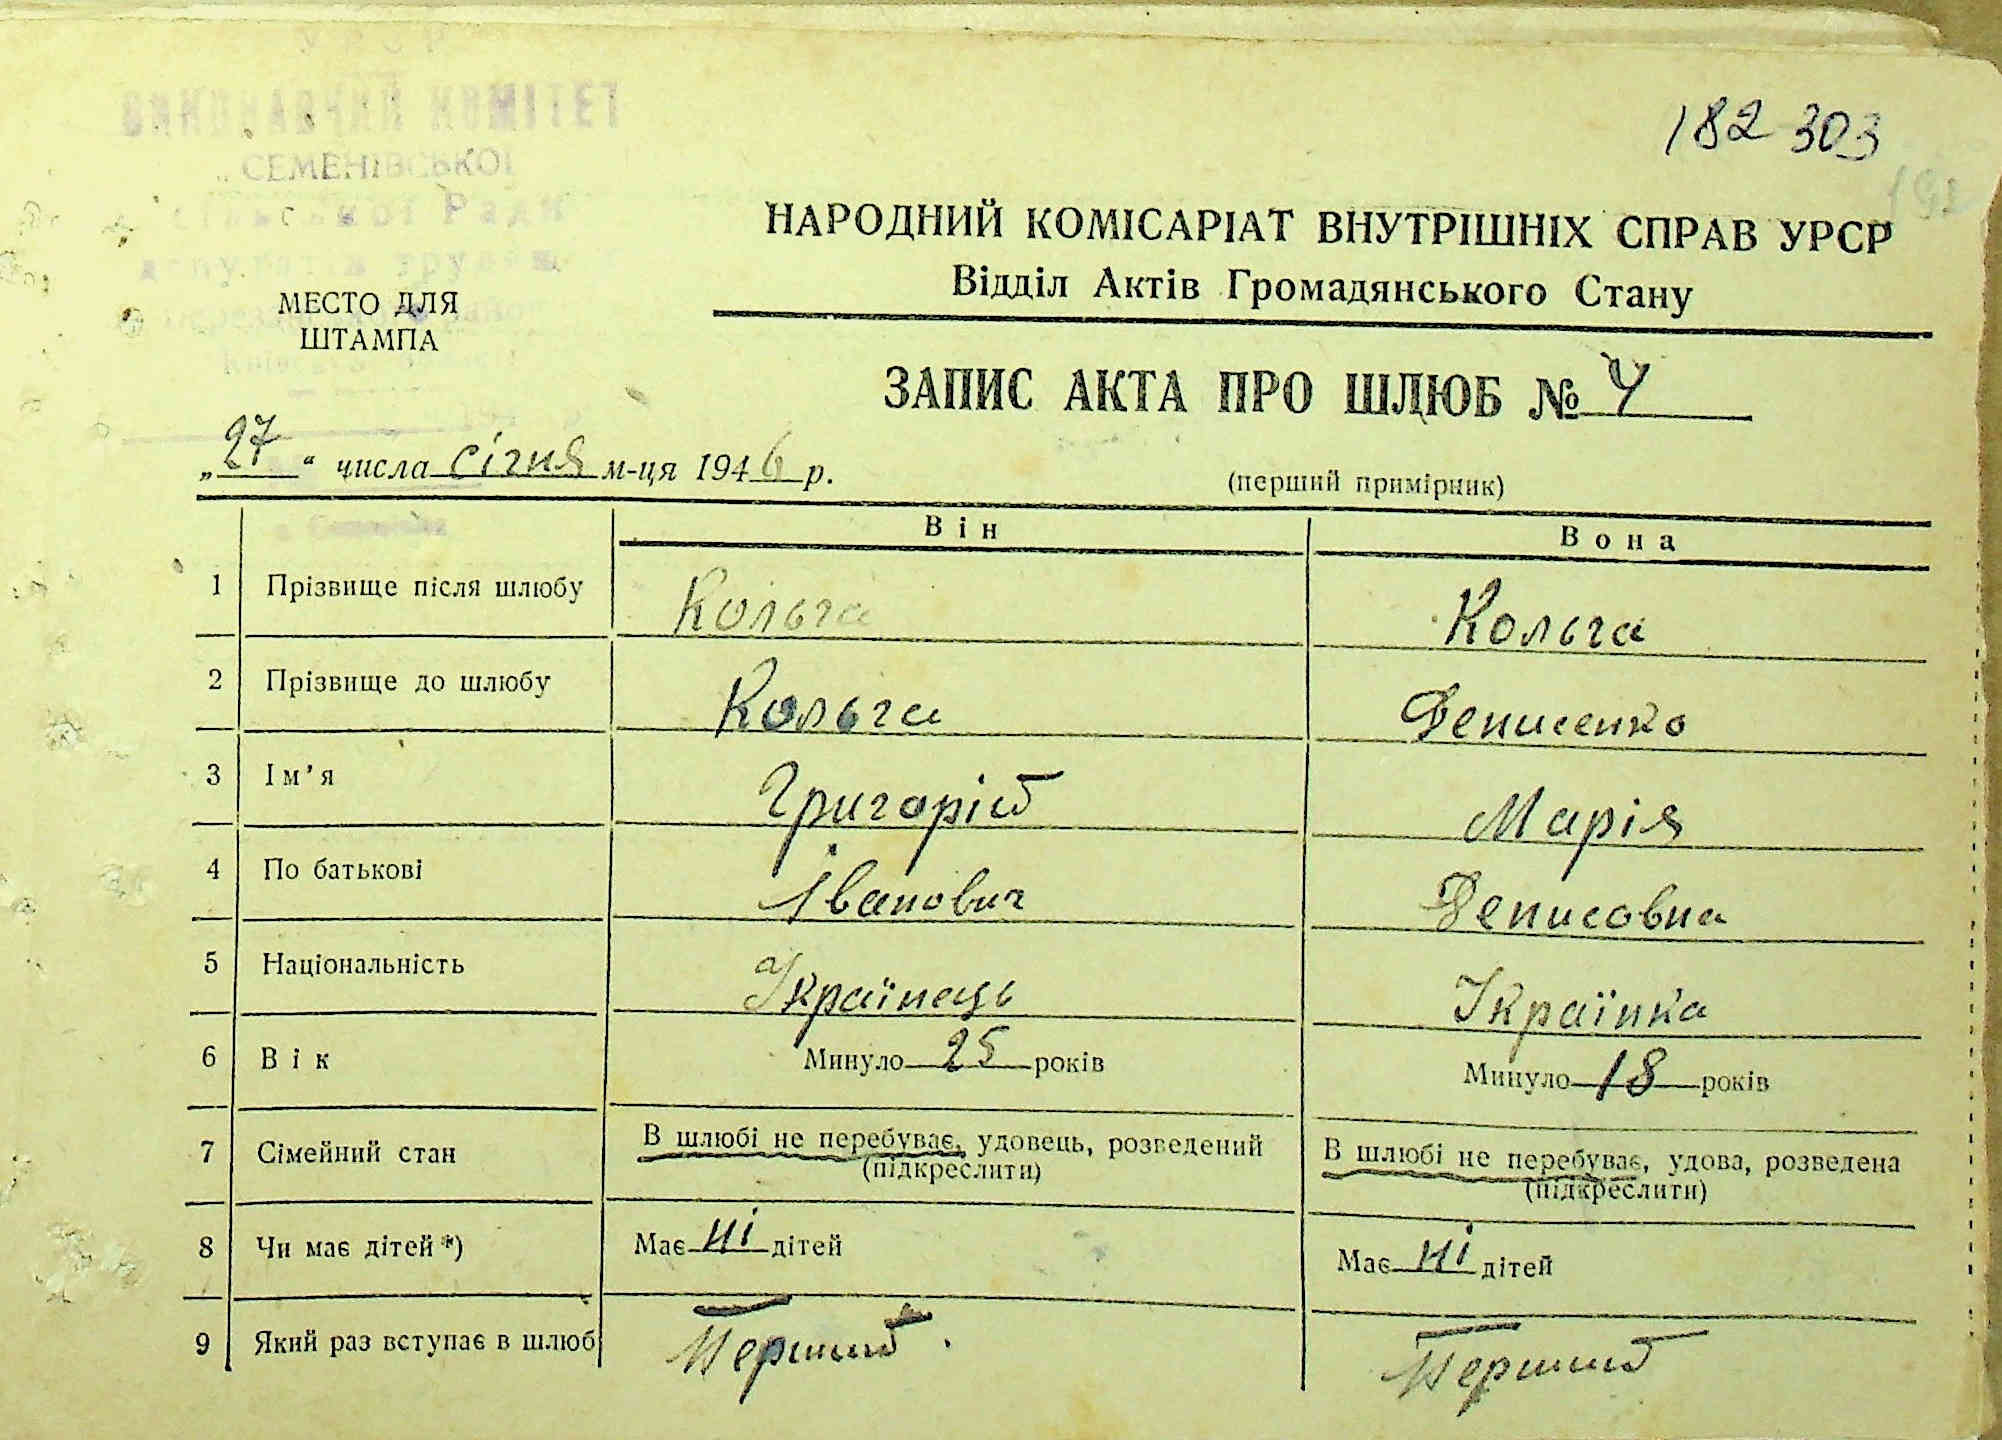 УРСР
ВИКОНАВЧИЙ КОМІТЕТ
СЕМЕНІВСЬКОЇ
сільської Ради
депутатів трудящих
182 303
НАРОДНИЙ КОМІСАРІАТ ВНУТРІШНІХ СПРАВ УРСР
Відділ Актів Громадянського Стану
МЕСТО ДЛЯ
ШТАМПА
ЗАПИС АКТА ПРО ШЛЮБ № 4
„27“ числа січня м-ця 1946 р.
(перший примірник)
Він Вона
1 Прізвище після шлюбу Кольга Кольга
2 Прізвище до шлюбу Кольга Денисенко
3 Ім'я Григорій Марія
4 По батькові Іванович Денисовна
5 Національність Українець Українка
6 Вік Минуло 25 років Минуло 18 років
7 Сімейний стан В шлюбі не перебуває, удовець, розведений В шлюбі не перебуває, удова, розведена
(підкреслити) (підкреслити)
8 Чи має дітей*) Має ні дітей Має ні дітей
9 Який раз вступає в шлюб Перший Перший